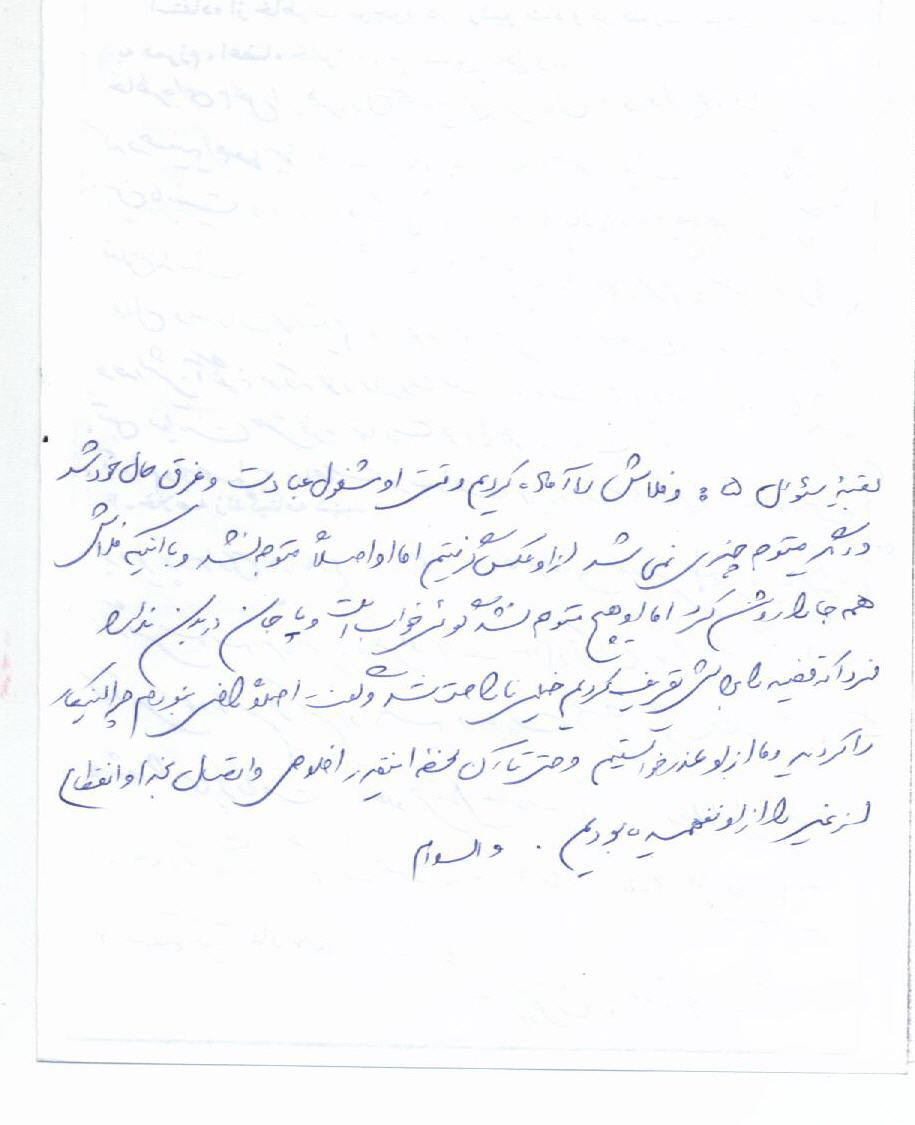 بقیهٔ سئوال ۵ : و فلاش را آماده کردیم وقتی او مشغول عبادت و غرق حال خود شد
و دیگر متوجه چیزی نمی شد از او عکس گرفتیم اما او اصلاً متوجه نشد و با اینکه فلاش
همه جا را روشن کرد اما او هیچ متوجه نشد گوئی خواب است و یا جان در بدن ندارد
فردا که قضیه را برایش تعریف کردیم خیلی ناراحت شد و گفت اصلاً راضی نبودم چرا اینکار
را کردید و ما از او عذر خواستیم و حتی تا آن لحظه اینقدر اخلاص و اتصال بخدا و انقطاع
از غیر را از او نفهمیده بودیم . والسلام